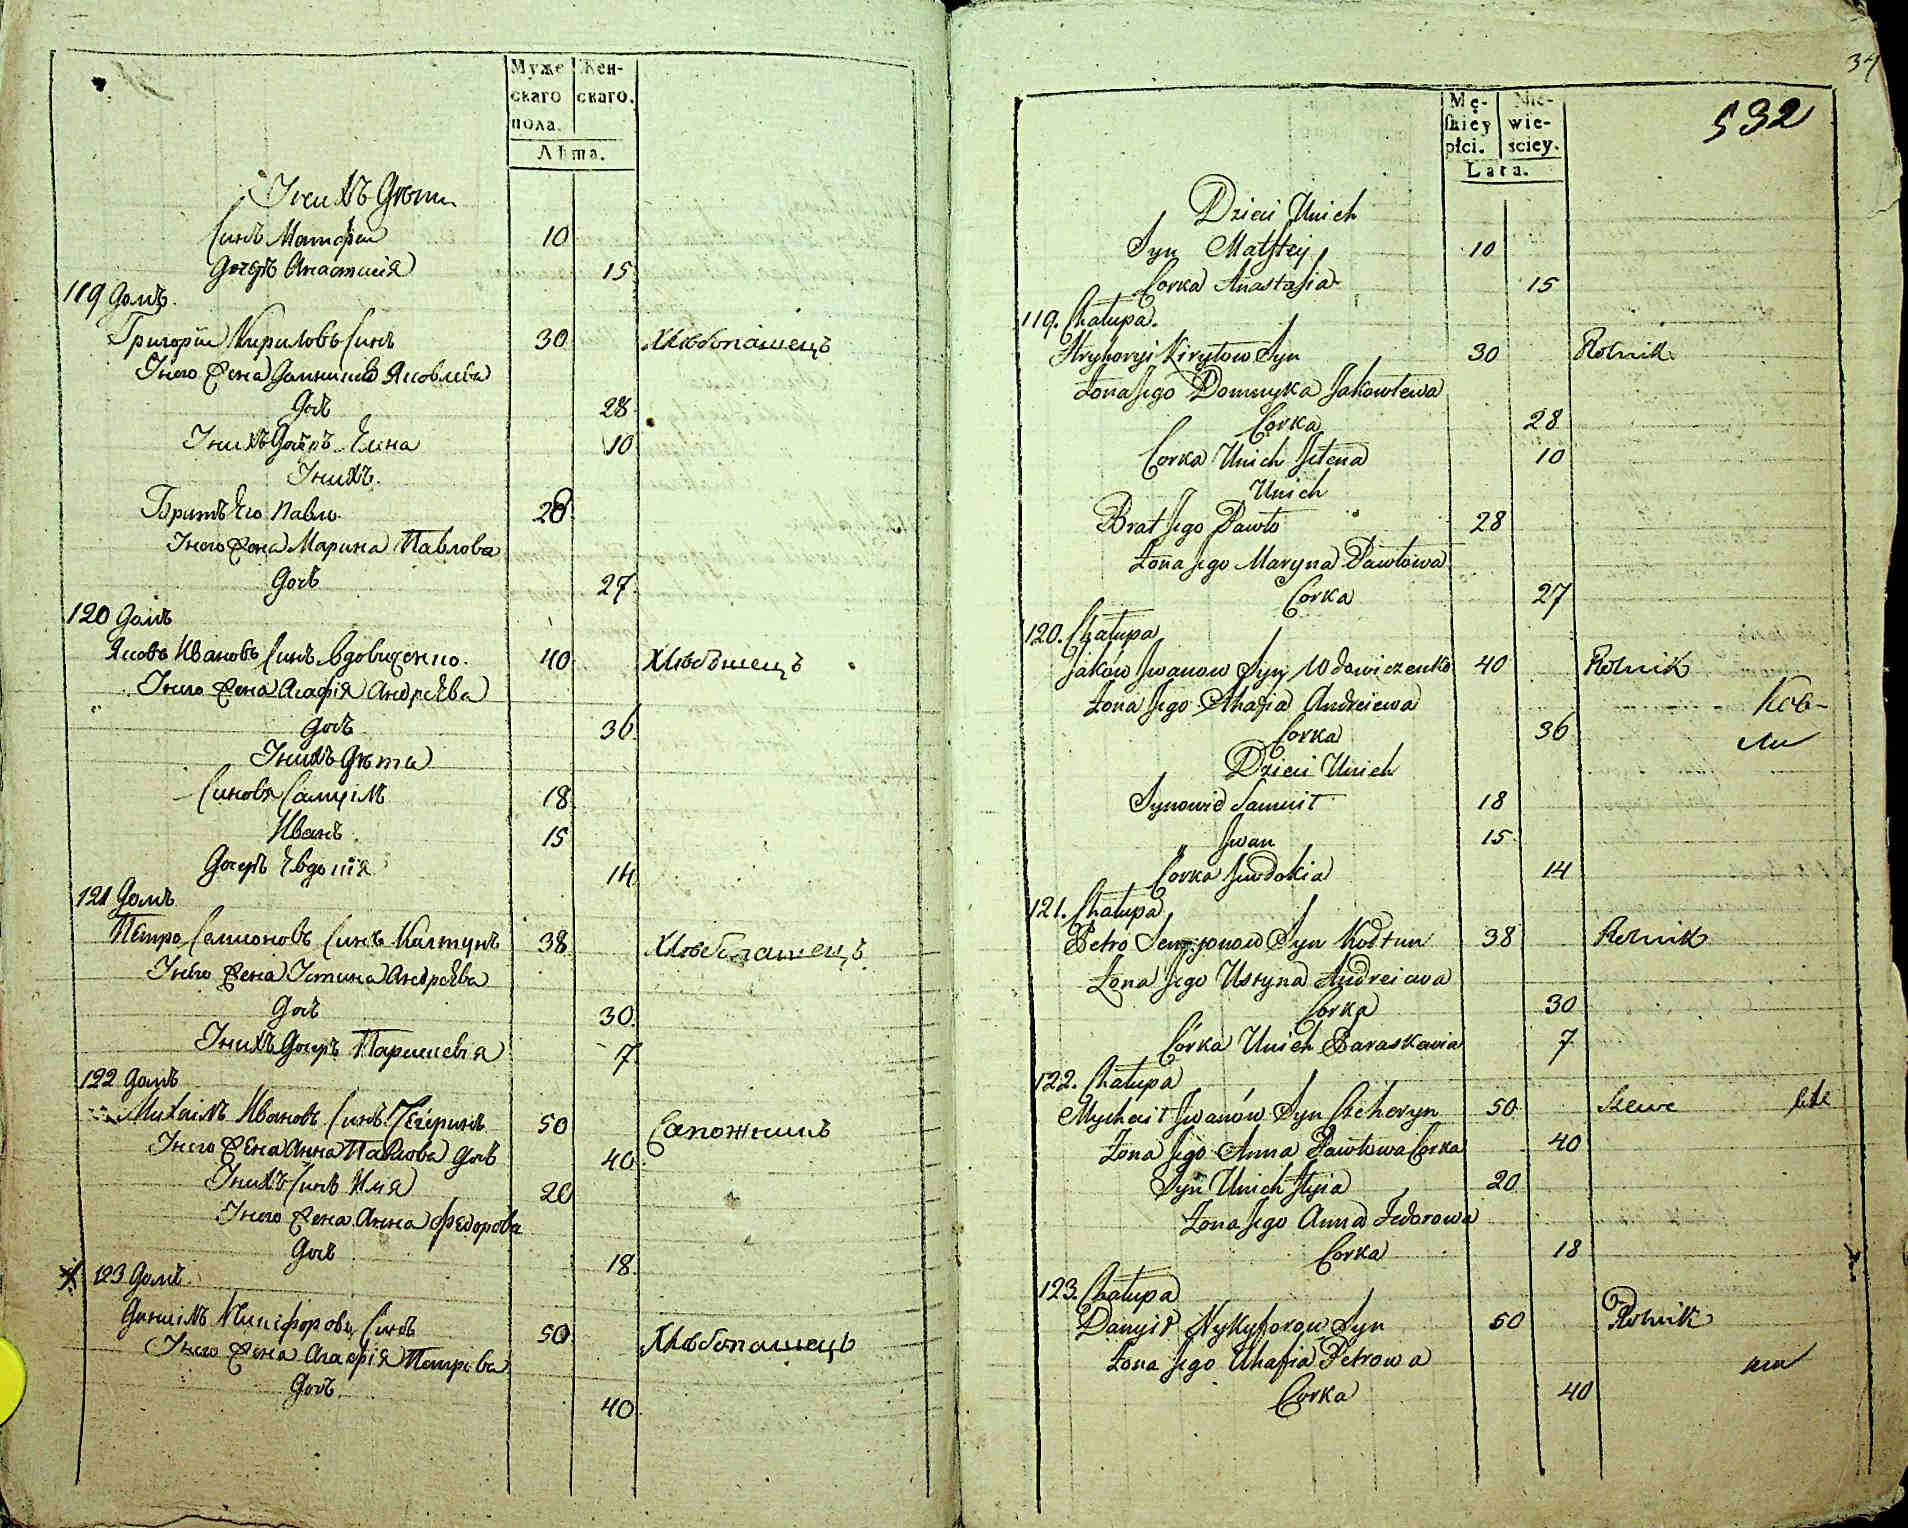 Муже
скаго
пола.
Жен-
скаго.
Лѣта.
У них Дѣти
Синъ Матфеи 10
Дочеръ Анастасія 15
119 Домъ.
Григорій Кириловъ Синъ 30 Хлѣбопашецъ
У него Жена Домникія Яковлева
Дочъ 28
У них Дочеръ Елена 10
У нихъ
Братъ Его Павло 28
У него Жена Марина Павлова
Дочъ 27
120 Домъ
Яковъ Ивановъ Синъ Вдовиченко 40
У него Жена Агафія Андрѣева
Дочъ 36
У них Дѣти
Синовя Самуіл 18
Иванъ 15
Дочеръ Евдокія 14
121 Домъ
Петро Семионовъ Синъ Калтунъ 38 Хлѣбопашецъ
У него Жена Устина Андрѣева
Дочъ 30
У них Дочеръ Параскевія 7
122 Домъ
Михаил Ивановъ Синъ Чегеринъ 50 Сапожникъ
У него Жена Анна Павлова Дочъ 40
У них Синъ Илія 20
У него Жена Анна Федорова
Дочъ 18
123 Домъ
Даниіл Никифоровъ Синъ 50 Хлѣбопашецъ
У него Жена Агафія Петрова
Дочъ 40
34
532
Mę-
skiey
płci.
Nie-
wie-
sciey.
Lata.
Dzieci Unich
Syn Matftey 10
Corka Anastasia 15
119. Chałupa.
Hryhoryi Kiryłow Syn 30 Rolnik
Żona Jego Domnyka Jakowlewa
Corka 28
Corka Unich Jełena 10
Unich
Brat Jego Pawło 28
Żona Jego Maryna Pawłowa
Corka 27
120. Chałupa
Jaków Jwanow Syn Wdowiczenko 40 Rolnik
Żona Jego Ahafia Andreiewa
Corka 36
Dzieci Unich
Synowie Samuił 18
Jwan 15
Corka Jewdokia 14
121. Chałupa
Petro Semyonow Syn Kołtun 38 Rolnik
Żona Jego Ustyna Andreiewa
Corka 30
Córka Unich Paraskawia 7
122. Chałupa
Mychaił Jwanów Syn Czeheryn 50 Szewc
Żona Jego Anna Pawłowa Corka 40
Syn Unich Jlyia 20
Żona Jego Anna Fedorowa
Corka 18
123. Chałupa
Danyił Nykyforow Syn 50 Rolnik
Żona Jego Uhafia Petrowa
Corka 40